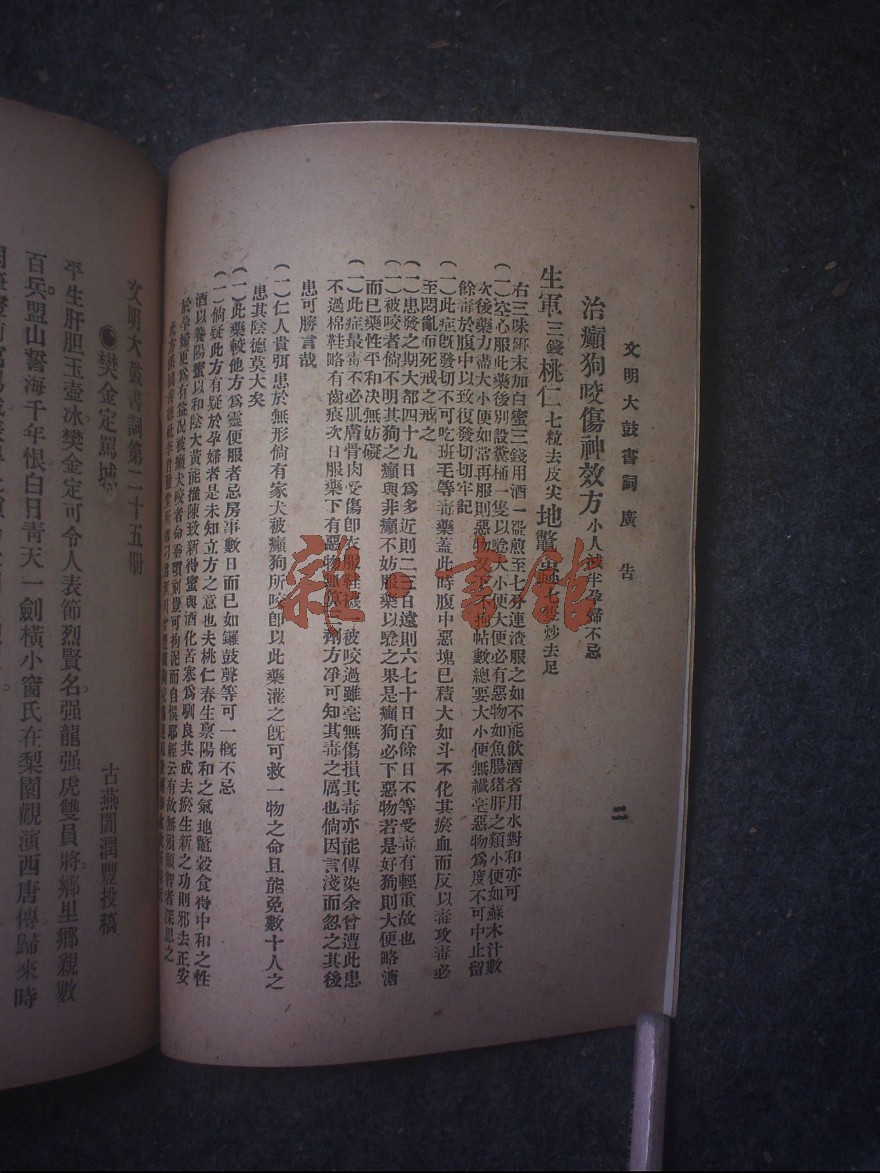 文明大鼓書詞廣告
二
治癲狗咬傷神效方 小人減半孕婦不忌
生軍三錢桃仁七粒去皮尖地鼈蟲七隻炒去足
右三味研末加白蜜三錢用酒一碗煎至七分連渣服之如不能飲酒者用水對和亦可
(一)空心服此藥後別設糞桶一隻以驗大小便大便必有惡物如魚腸猪肝之類小便如蘇木汁數
次後藥力盡大小便如常再服則惡物又下不拘帖數總要大小便無纖毫惡物爲度不可中止留
餘毒於腹中以致復發切切牢記
(一)此症旣發切不可吃班毛等毒藥蓋此時腹中惡塊已積大如斗不化其瘀血而反以毒攻毒必
至悶亂而死戒之戒之
(一)患發之期大都四十九日爲多近則二三日遠則六七十日百餘日不等受毒有輕重故也
(一)被咬者倘不明其狗之癲與非癲不妨服藥以驗之果是癲狗必下惡物若是好狗則大便略溏
而已藥性平和決無妨礙
(一)此症最毒不必肌膚骨肉受傷卽衣服鞋襪被咬過雖毫無傷損其毒亦能傳染余曾遭此患
不過棉鞋略有齒痕次日服藥下有惡物無算三劑方净可知其毒之厲也倘因言淺而忽之其後
患可勝言哉
(一)仁人貴弭患於無形倘有家犬被癲狗所咬卽以此藥灌之旣可救一物之命且能免數十人之
患其陰德莫大矣
(一)此藥較他方爲靈便服者忌房事數日而已如鑼鼓聲等可一概不忌
(一)倘疑此方有疑於孕婦者是未知立方之意也夫桃仁春生禀陽和之氣地鼈穀食得中和之性
酒以養陽蜜以和陰大黃能推陳致新得蜜與酒化苦寒爲馴良共成去瘀生新之功則邪去正安
於孕婦更爲有益况被癲犬咬者命在頃刻豈可拘泥而自悞耶經云有故無殞願智者深思之
文明大鼓書詞第二十五册
●樊金定罵城
古燕閻潤豐投稿
平生肝胆玉壺冰樊金定可令人表節烈賢名。强龍强虎雙員將。鄉里鄉親數
百兵。盟山誓海千年恨。白日靑天一劍橫。小窗氏在梨園觀演西唐傳歸來時